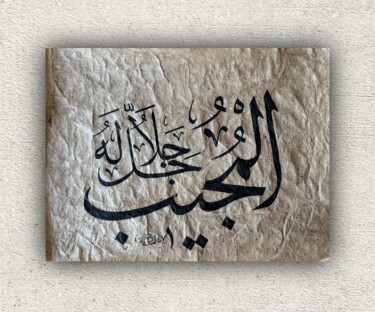 المُجِيب
جَلَّ جَلَالُهُ